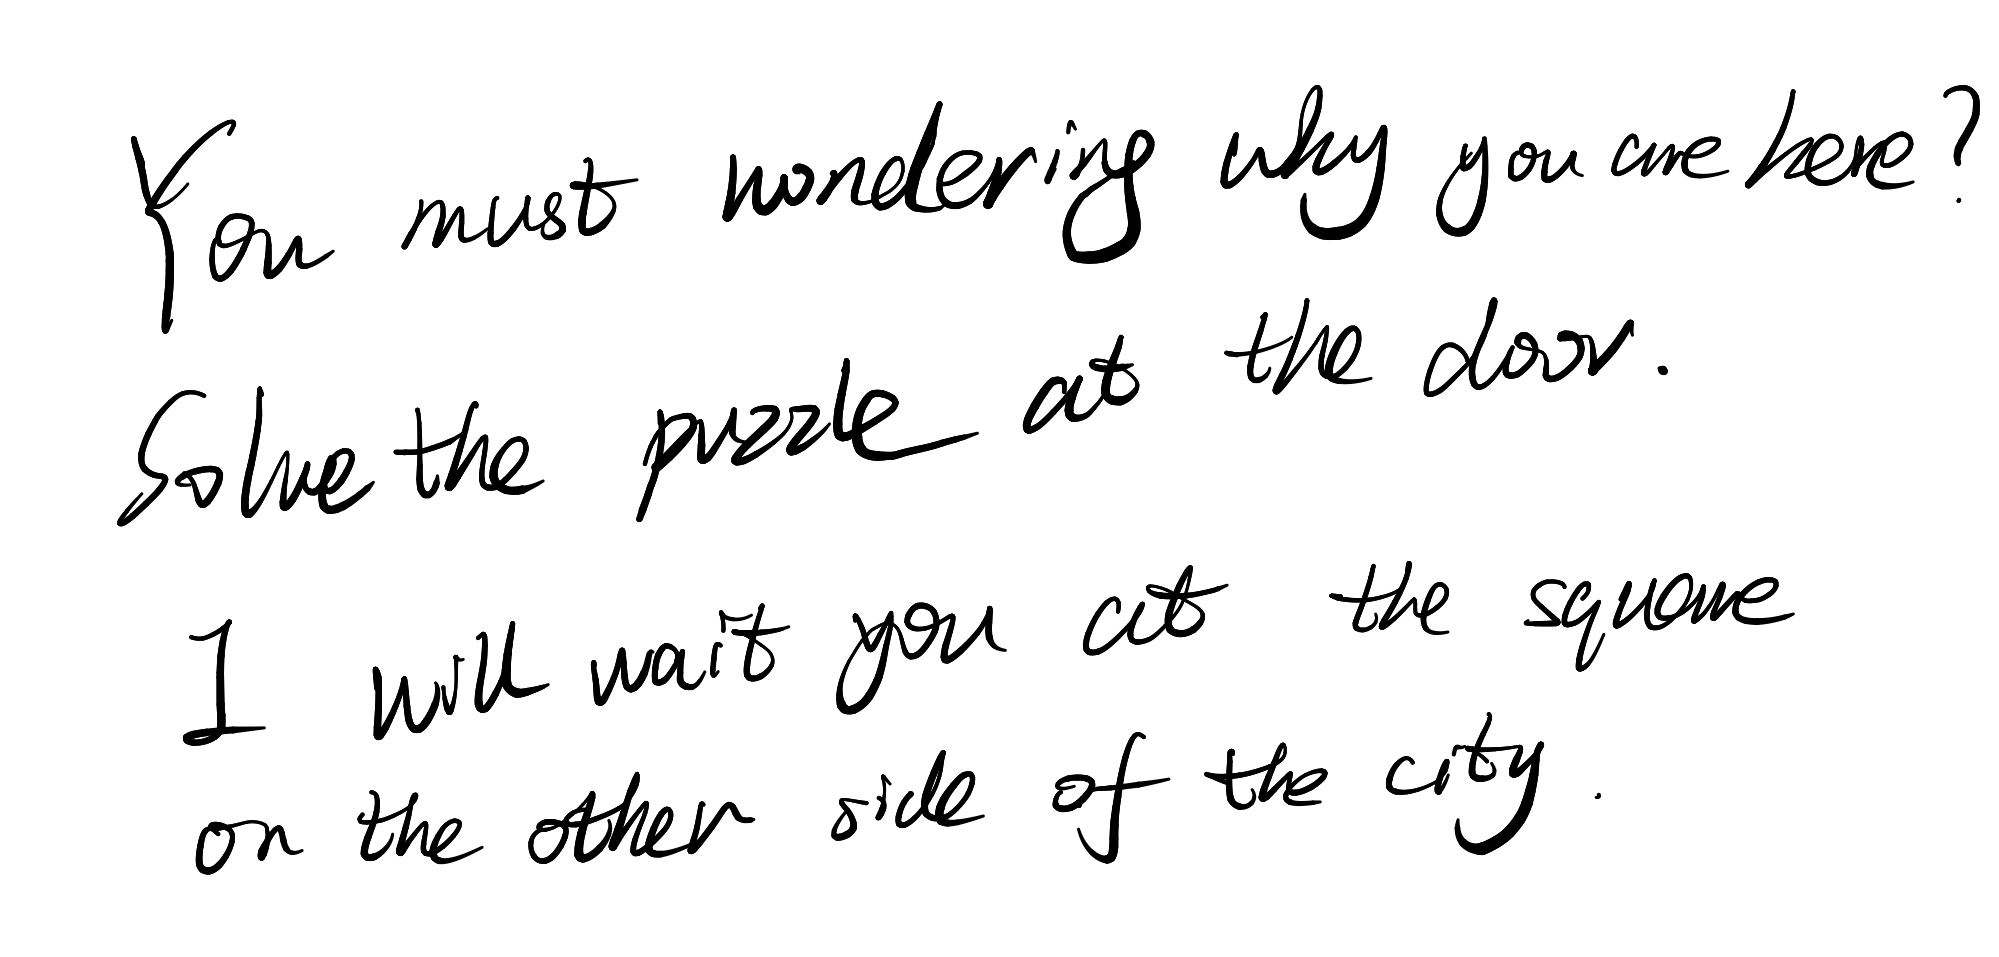 You must wondering why you are here?
Solve the puzzle at the door.
I will wait you at the square
on the other side of the city.